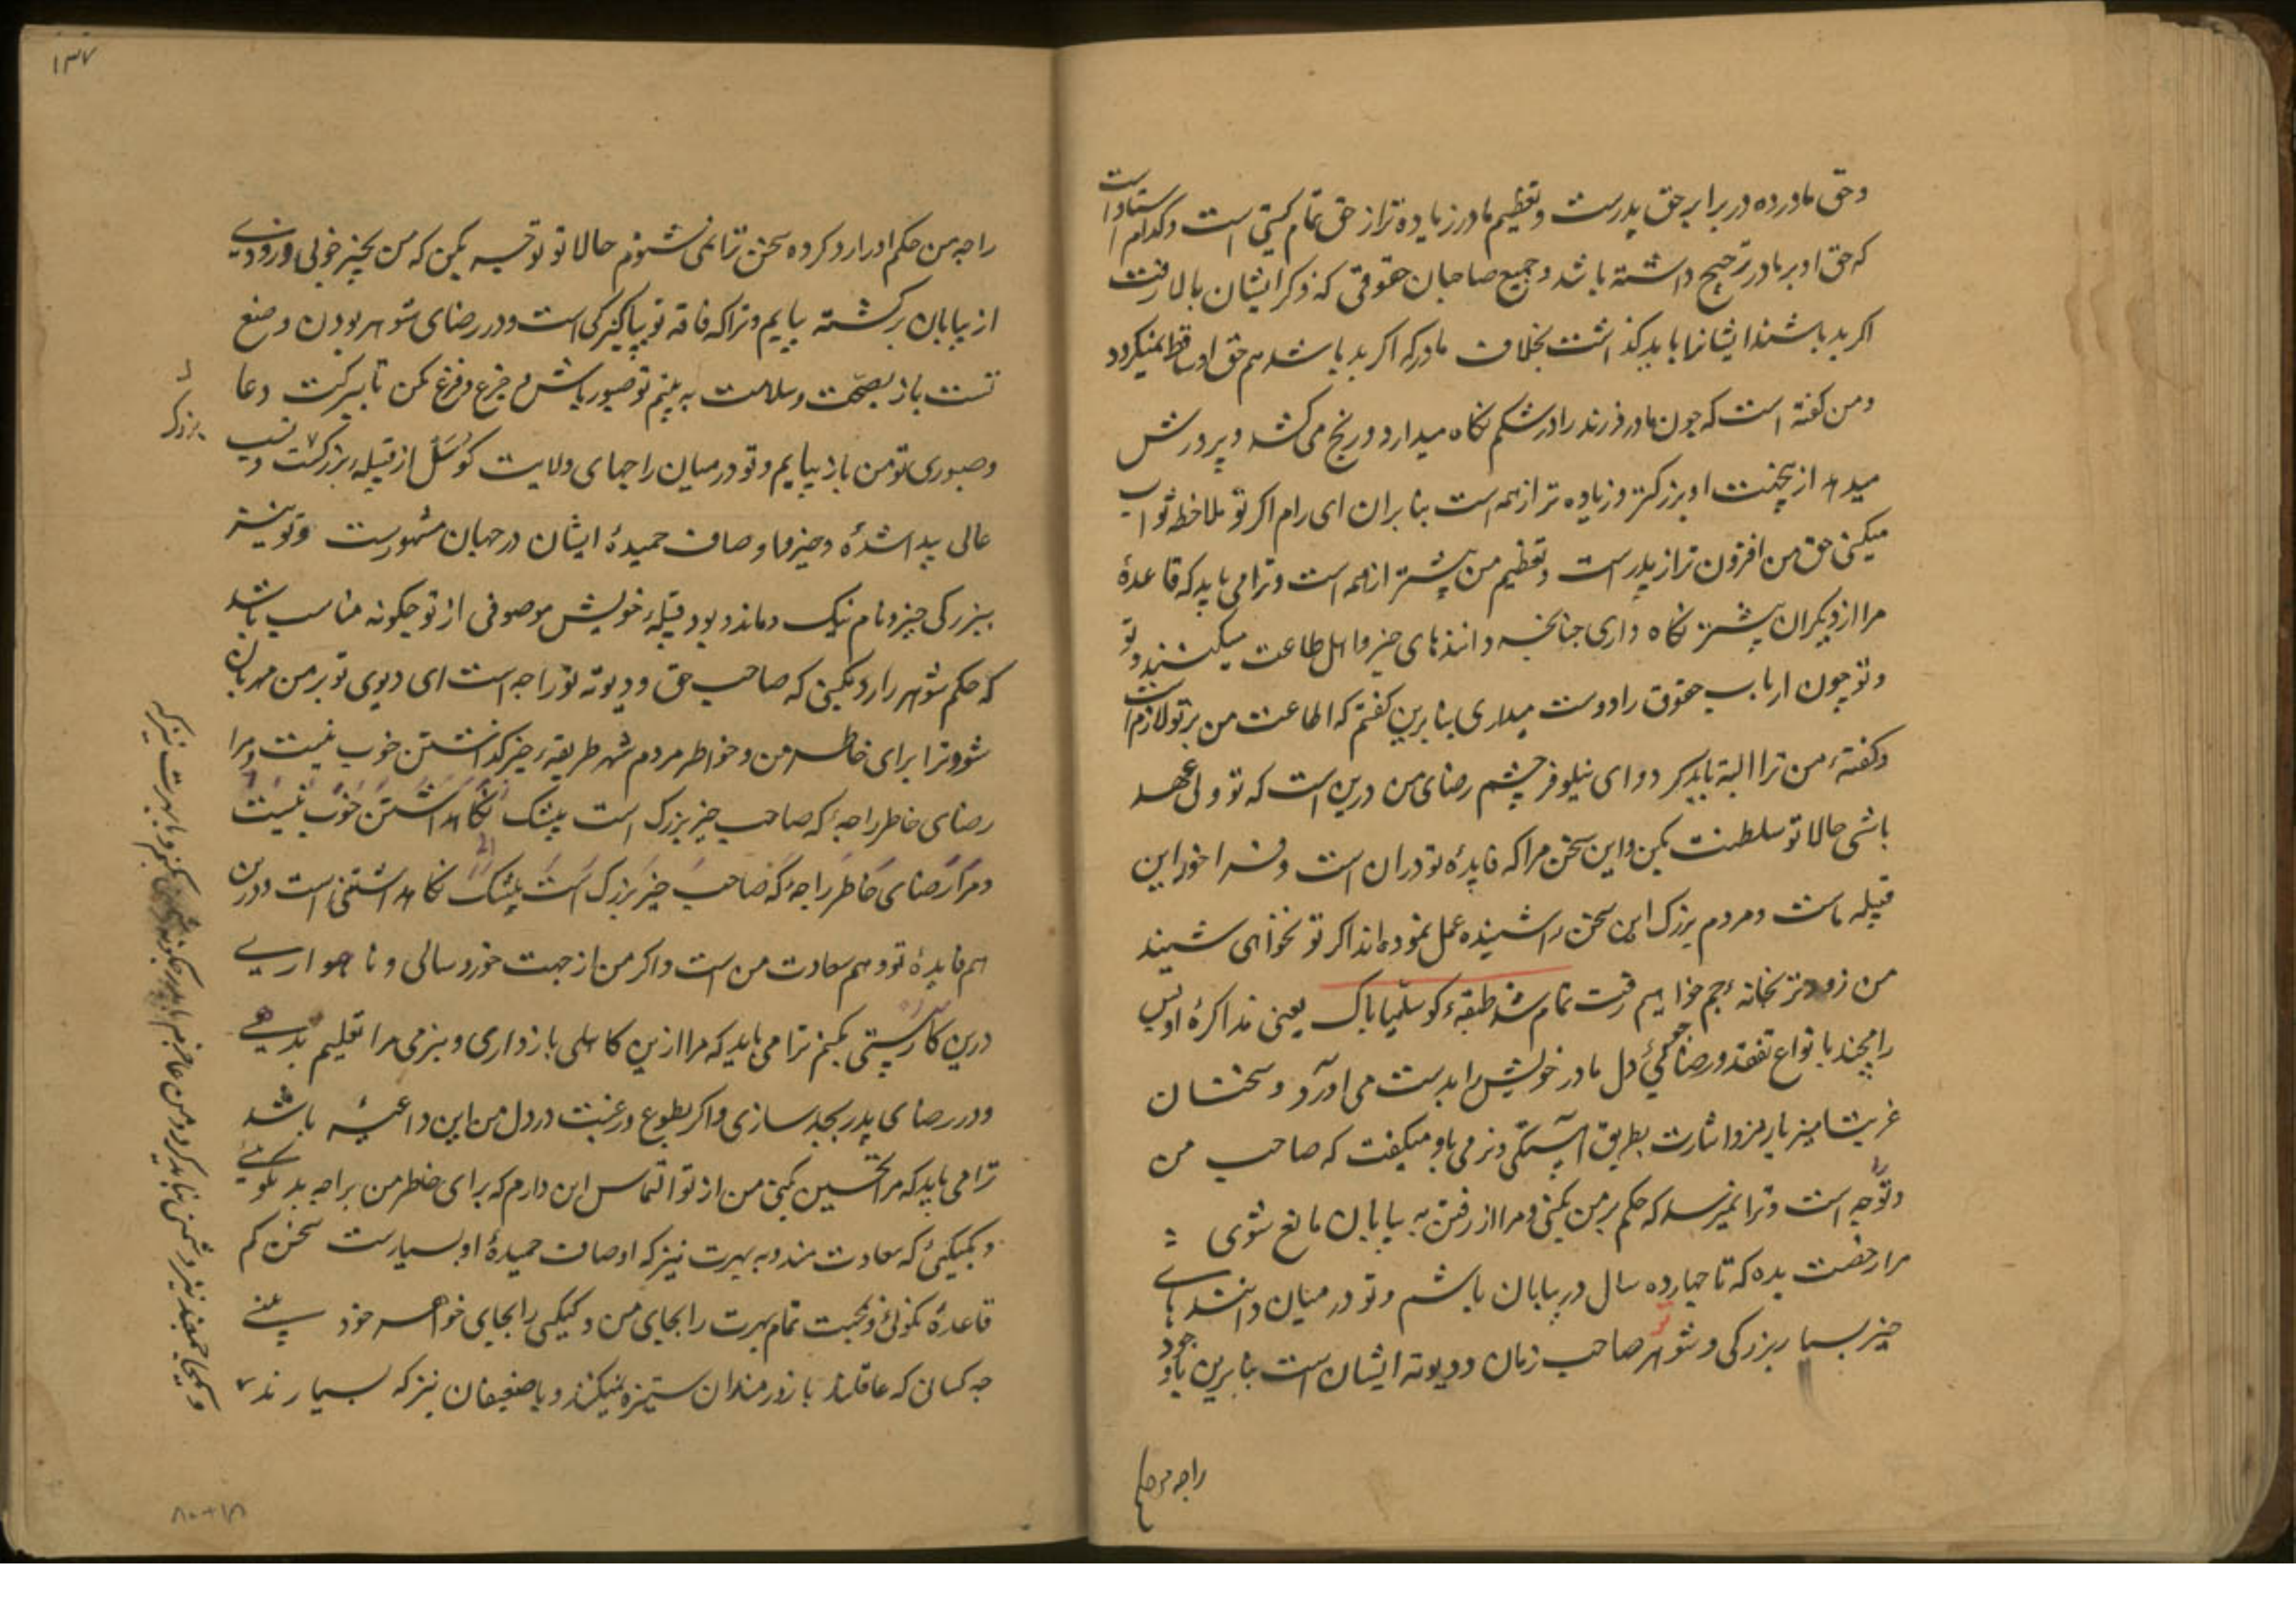 و حق مادر ده در برابر حق پدرست و تعظیم مادر زیاده تر از حق تمام گیتی است و کدام استاد است
که حق او بر مادر ترجیح داشته باشد و جمیع صاحبان حقوقی که ذکر ایشان بالا رفت
اکر بد باشند ایشانرا باید گذاشت بخلاف مادر که اکر بد باشد هم حق او ساقط نمیکردد
و من کفته است که چون مادر فرزند را در شکم نکاه میدارد و رنج می کشد و پرورش
میدهد ازینجهت او بزرکتر و زیاده تر از همه است بنابران ای رام اکر تو ملاحظه ثواب
میکنی حق من افزون تر از پدر است و تعظیم من پیشتر از همه است و ترا می باید که قاعدهٔ
مرا از دیکران پیشتر نکاه داری چنانچه دانندهای خیر و اهل طاعت میکنند و تو
و تو چون ارباب حقوق را دوست میداری بنابرین کفتم که اطاعت من بر تو لازم است
و کفتهٔ من ترا البته باید کرد و ای نیلوفر چشم رضای من درین است که تو ولی عهد
باشی حالا تو سلطنت بکن و این سخن مرا که فایدهٔ تو دران است و فراخور این
قبیله ماست و مردم بزرک این سخن را شنیده عمل نموده اند اکر تو نخواهی شنید
من زودتر بخانهٔ جم خواهم رفت تمام شد طبقهٔ کوسلیاباک یعنی مذاکرهٔ او پس
رامچند بانواع تفقد و رضاجوئی دل مادر خویش را بدست می آورد و سخنان
غربت آمیز با رمز و اشارت بطریق آهستکی و نرمی باو میکفت که صاحب من
راجه است و ترا نمیرسد که حکم بر من بکنی و مرا از رفتن به بیابان مانع شوی
مرا رخصت بده که تا چهارده سال در بیابان باشم و تو در میان دانندهای
خیر بسیار بزرکی و شوهر صاحب زنان و دیوته ایشان است بنابرین باوجود
راجه من حکم
۱۳۷
راجه من حکم او را رد کرده سخن ترا نمی شنوم حالا تو توجه بکن که من بخیر خوبی و زودی
از بیابان برکشته بیایم و ترا که فاقه تو پاکیزکی است و در رضای شوهر بودن و صنع
تست باز بصحت و سلامت به بینم تو صبور باش و جزع و فزع مکن تا ببرکت دعا
و صبوری تو من باز بیایم و تو در میان راجهای ولایت کوسل از قبیله بزرکست و نسب
عالی پیدا شدهٔ و خیر و اوصاف حمیدهٔ ایشان در جهان مشهورست و تو نیز
ببزرکی خیر و نام نیک و ماند و بود قبیلهٔ خویش موصوفی از تو چکونه مناسب باشد
که حکم شوهر را رد بکنی که صاحب حق و دیوته تو راجه است ای دیوی تو بر من مهربان
شو و ترا برای خاطر من و خواطر مردم شهر طریقهٔ خیر کذاشتن خوب نیست و مرا
رضای خاطر راجه که صاحب خیر بزرک است بیشک نکاه داشتن خوب نیست
و مرا رضای خاطر راجه که صاحب خیر بزرک است بیشک نکاه داشتنی است و درین
هم فایدهٔ تو و هم سعادت من است و اکر من از جهت خورد سالی و ناهمواری
درین کار سستی بکنم ترا می باید که مرا ازین کاهلی بازداری و بنرمی مرا تعلیم بدهی
و در رضای پدر بجد سازی و اکر بطوع و رغبت در دل من این داعیه باشد
ترا می باید که مرا تحسین بکنی من از تو التماس این دارم که برای خاطر من براجه بد نکوئی
و بکیکئی که سعادت مند و به بهرت نیز که اوصاف حمیدهٔ او بسیارست سخن کم
قاعدهٔ نکوئی و محبت تمام بهرت را بجای من و کیکی را بجای خواهر خود به بینی
چه کسانی که عاقلند با زورمندان ستیزه نمیکنند و با ضعیفان نیز که بسیارند
بزرک